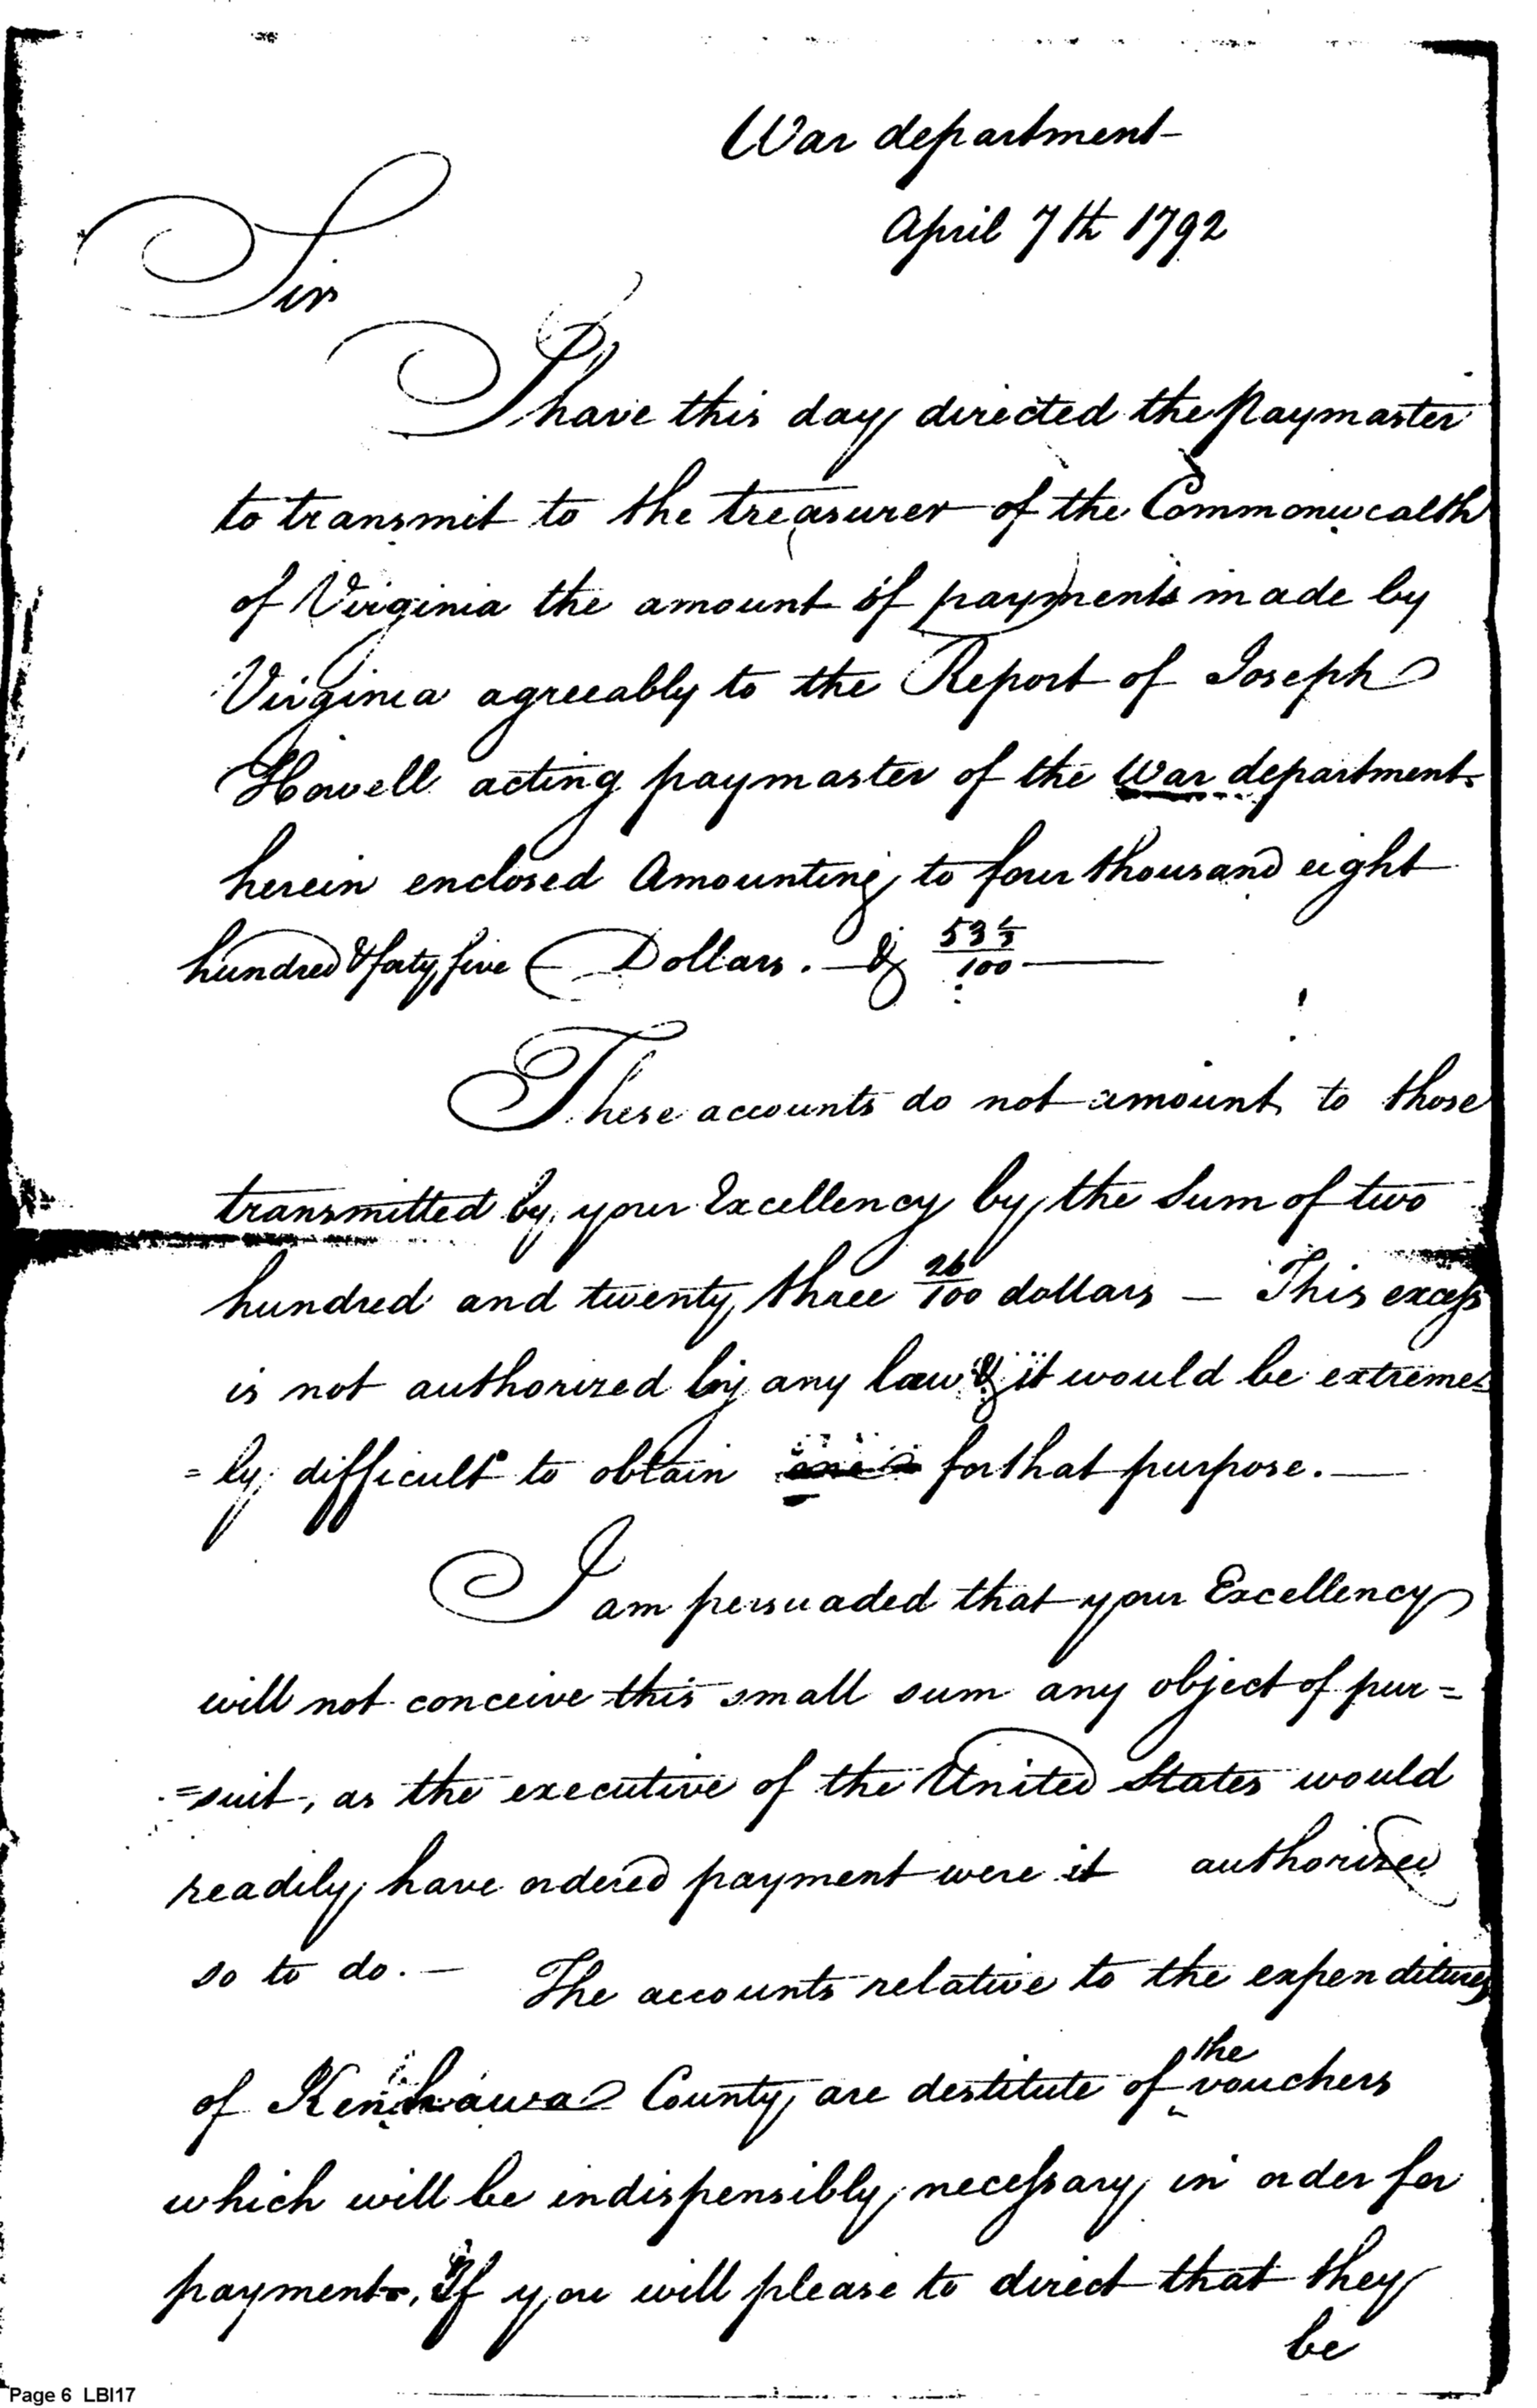 War department
April 7th 1792
Sir
I have this day directed the Paymaster
to transmit to the treasurer of the Commonwealth
of Virginia the amount of payments made by
Virginia agreeably to the Report of Joseph
Howell acting paymaster of the War department
herein enclosed Amounting to four thousand eight
hundred & forty five Dollars. — & 53⅓/100 —
These accounts do not amount to those
transmitted by your Excellency by the Sum of two
hundred and twenty three 26/100 dollars — This excess
is not authorized by any law & it would be extreme=
=ly difficult to obtain one for that purpose. —
I am persuaded that your Excellency
will not conceive this small sum any object of pur=
=suit, as the executive of the United States would
readily have ordered payment were it authorized
so to do. — The accounts relative to the expenditures
of Kenhawa County are destitute of the vouchers
which will be indispensibly necessary in order for
payment. If you will please to direct that they
be
Page 6 LBI17